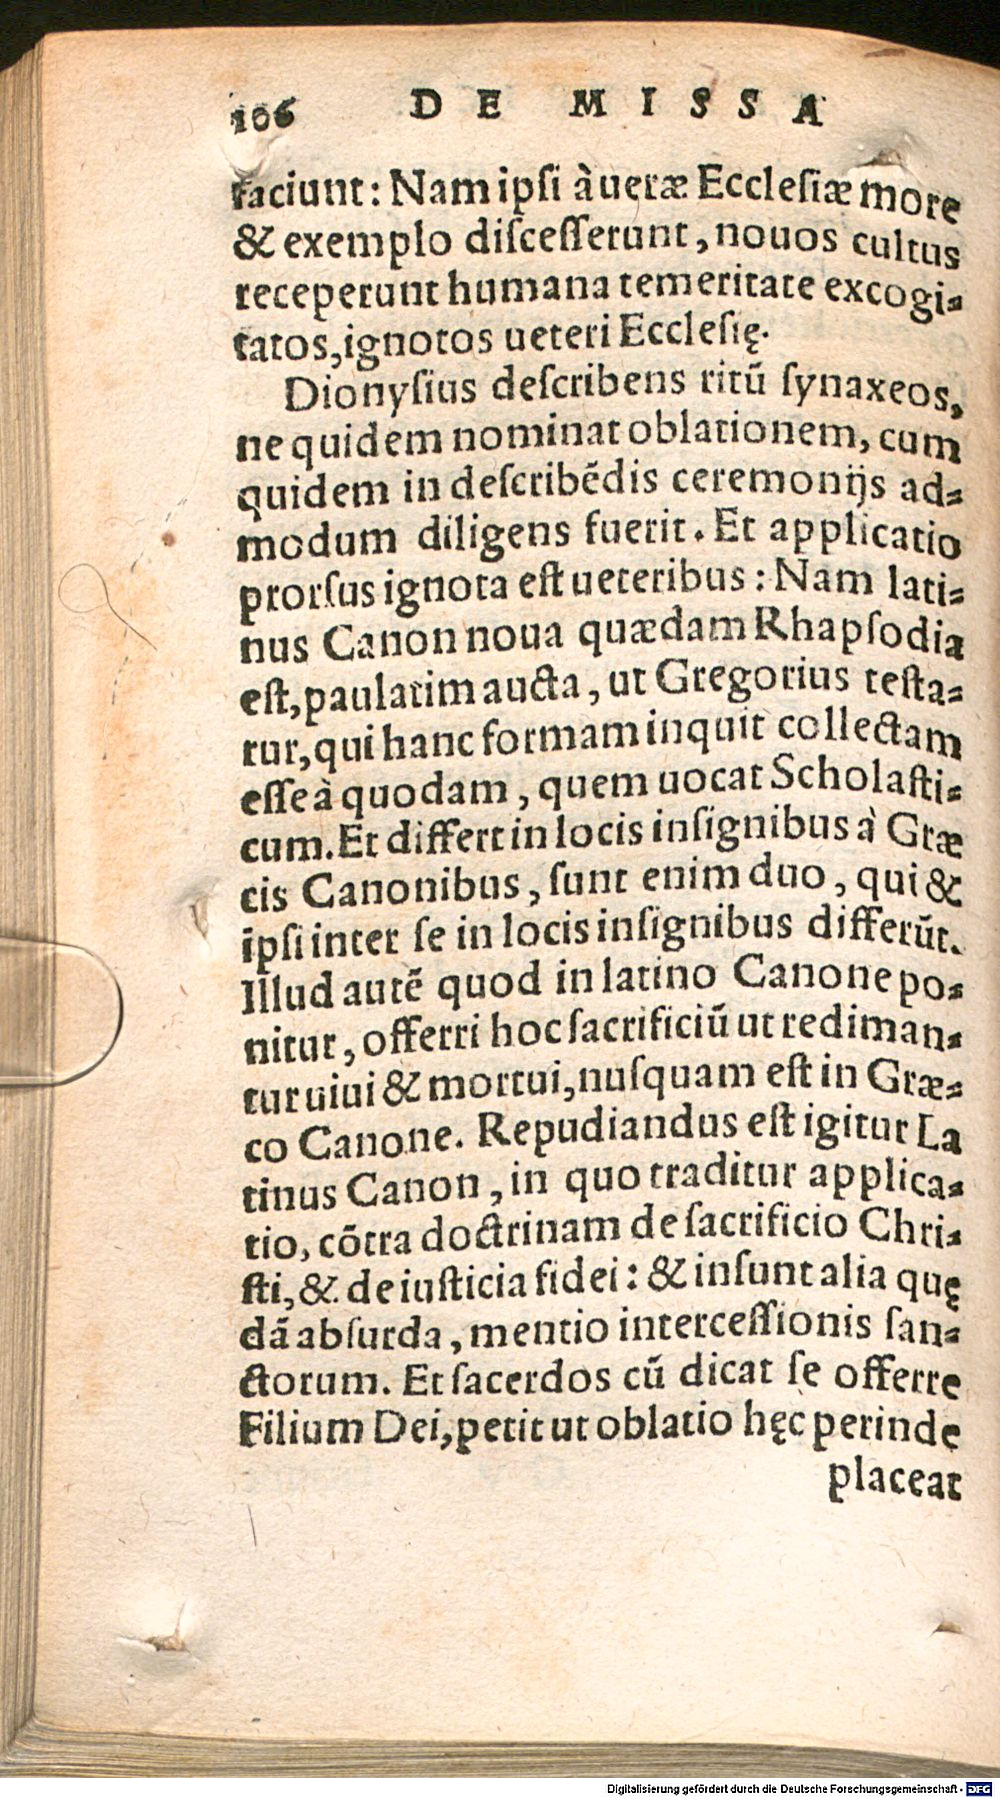 106 DE MISSA
faciunt: Nam ipſi à ueræ Eccleſiæ more
& exemplo diſceſſerunt, nouos cultus
receperunt humana temeritate excogi-
tatos, ignotos ueteri Eccleſię.
Dionyſius deſcribens ritū ſynaxeos,
ne quidem nominat oblationem, cum
quidem in deſcribēdis ceremonijs ad-
modum diligens fuerit. Et applicatio
prorſus ignota eſt ueteribus: Nam lati-
nus Canon noua quædam Rhapſodia
eſt, paulatim aucta, ut Gregorius teſta-
tur, qui hanc formam inquit collectam
eſſe à quodam, quem uocat Scholaſti-
cum. Et differt in locis inſignibus à Græ
cis Canonibus, ſunt enim duo, qui &
ipſi inter ſe in locis inſignibus differūt.
Illud autē quod in latino Canone po-
nitur, offerri hoc ſacrificiū ut rediman-
tur uiui & mortui, nuſquam eſt in Græ-
co Canone. Repudiandus eſt igitur La
tinus Canon, in quo traditur applica-
tio, cōtra doctrinam de ſacrificio Chri-
ſti, & de iuſticia fidei: & inſunt alia quę
dā abſurda, mentio interceſſionis ſan-
ctorum. Et ſacerdos cū dicat ſe offerre
Filium Dei, petit ut oblatio hęc perinde
placeat
Digitalisierung gefördert durch die Deutsche Forschungsgemeinschaft - DFG